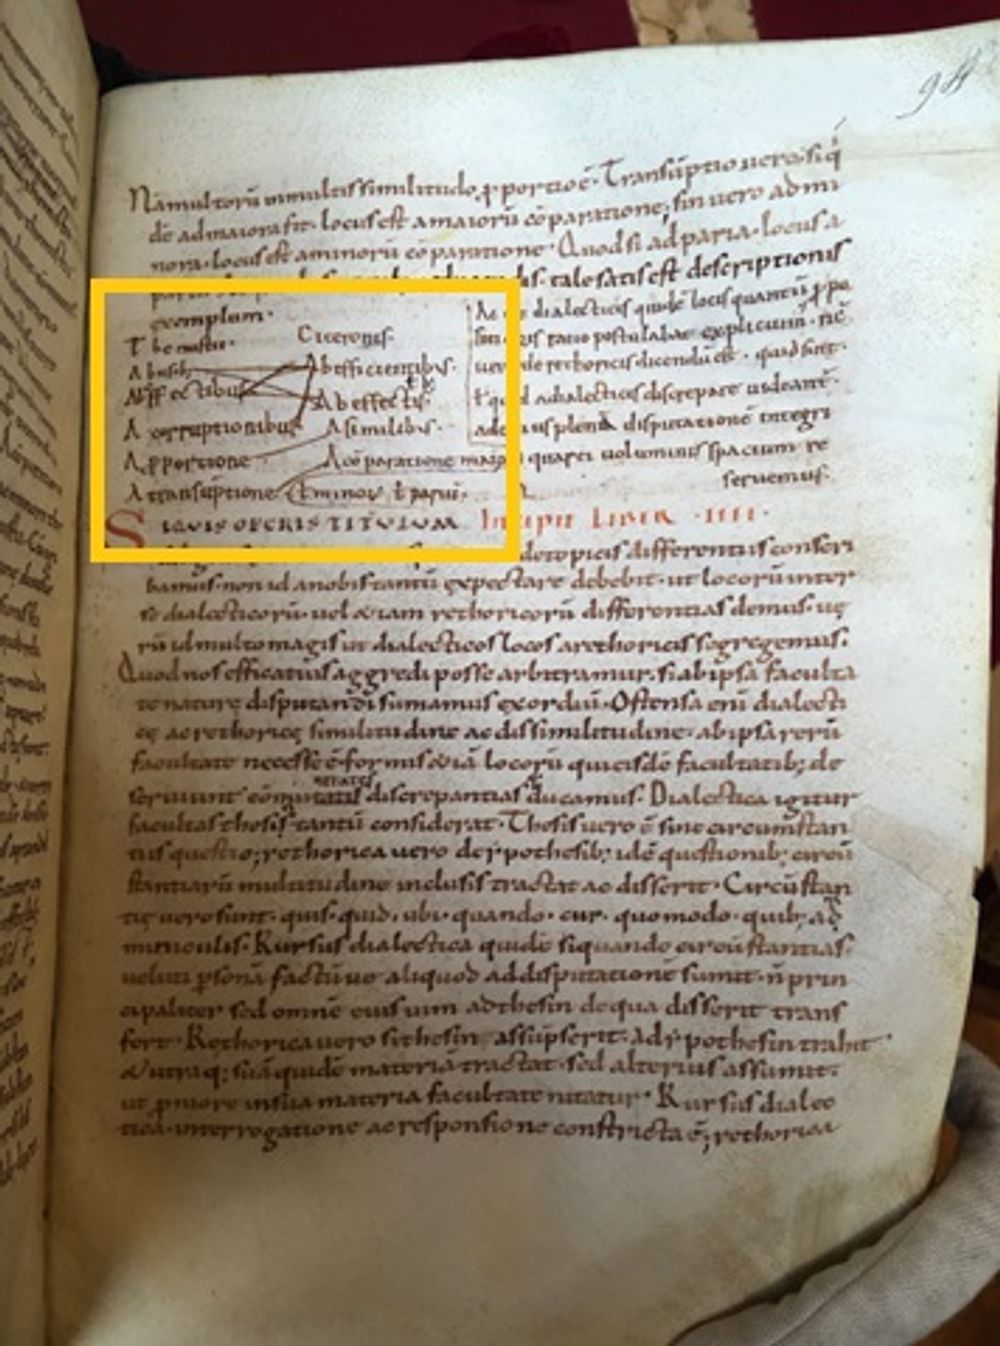 Namultorū inmultis similitudo, ꝓportio ē. Transūptio vero siq̄
dē admaiora fit. locus est amaiorū cōparatione; sin vero admi
nora. locus est aminorū cōparatione. Quodsi adparia. locus a
tale satis est descriptionis
exemplum.
Themistii. Ciceronis.
Abefficientibus.
Aeffectibus Abeffectis.
Acorruptionibus Asimilibus.
Aꝓportione Acōparatione maio
Atransūptione ł minorū ł pariū.
Ac de dialecticis quidē locis quantū ꝓpo
siti operis ratio postulabat explicuim. nc̄
vero de rethoricis dicendū est. quid sint.
ł quid adialecticis discrepare videant̄.
ad eius plenā disputatione integri
quarti voluminis spacium re
servemus.
SIQUIS OPERIS TITULUM Incipit LIBER .IIII.
detopicis differentiis conscri
bamus. non id anobis tantū expectare debebit. ut locorū inter
se dialecticorū. vel &iam rethoricorū differentias demus. ve
rū idmulto magis ut dialecticos locos arethoricis segregemus.
Quod nos efficatius aggredi posse arbitramur. si ab ipsa faculta
tū nature disputandi sumamus exordiū. Ostensa enī dialecti
cę ac rethoricę similitudine ac dissimilitudine. ab ipsarū
facultatē necesse ē formis &iā locorū qui eisdē facultatib; de
serviunt cōmunitates discrepantiasq; ducamus. Dialectica igitur
facultas thosis tantū considerat. Thosis vero ē sine circumstan
tiis questio; rethorica vero de ypothesib; idē questionib; circū
stantiarū multitudine inclusis tractat ac disserit. Circūstan
tię vero sunt. quis. quid. ubi. quando. cur. quomodo. quib; ad
miniculis. Rursus dialectica quidē siquando circūstantias.
veluti ꝑsonā factū ve aliquod addisputationē sumit. n̄ prin
cipaliter sed omnē eius vim adthesin dequa disserit trans
fert. Rethorica vero si thesin assūpserit. ad ypothesin trahit
& utraq; suā quidē materiā tractat. sed alterius assumit.
ut ꝓniore insua materia facultate nitatur. Rursus dialec
tica. interrogatione ac responsione constricta ē; rethorica